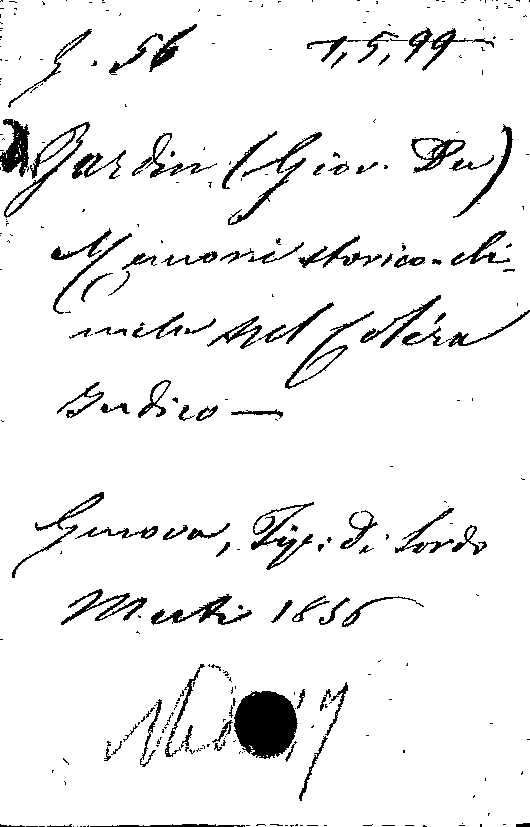 g. 56 1,5,99
Jardin (Giov. Du)
Memorie storico-cli-
niche sul Coléra
Indico —
Genova, Typ: di Sordo
Muti 1836